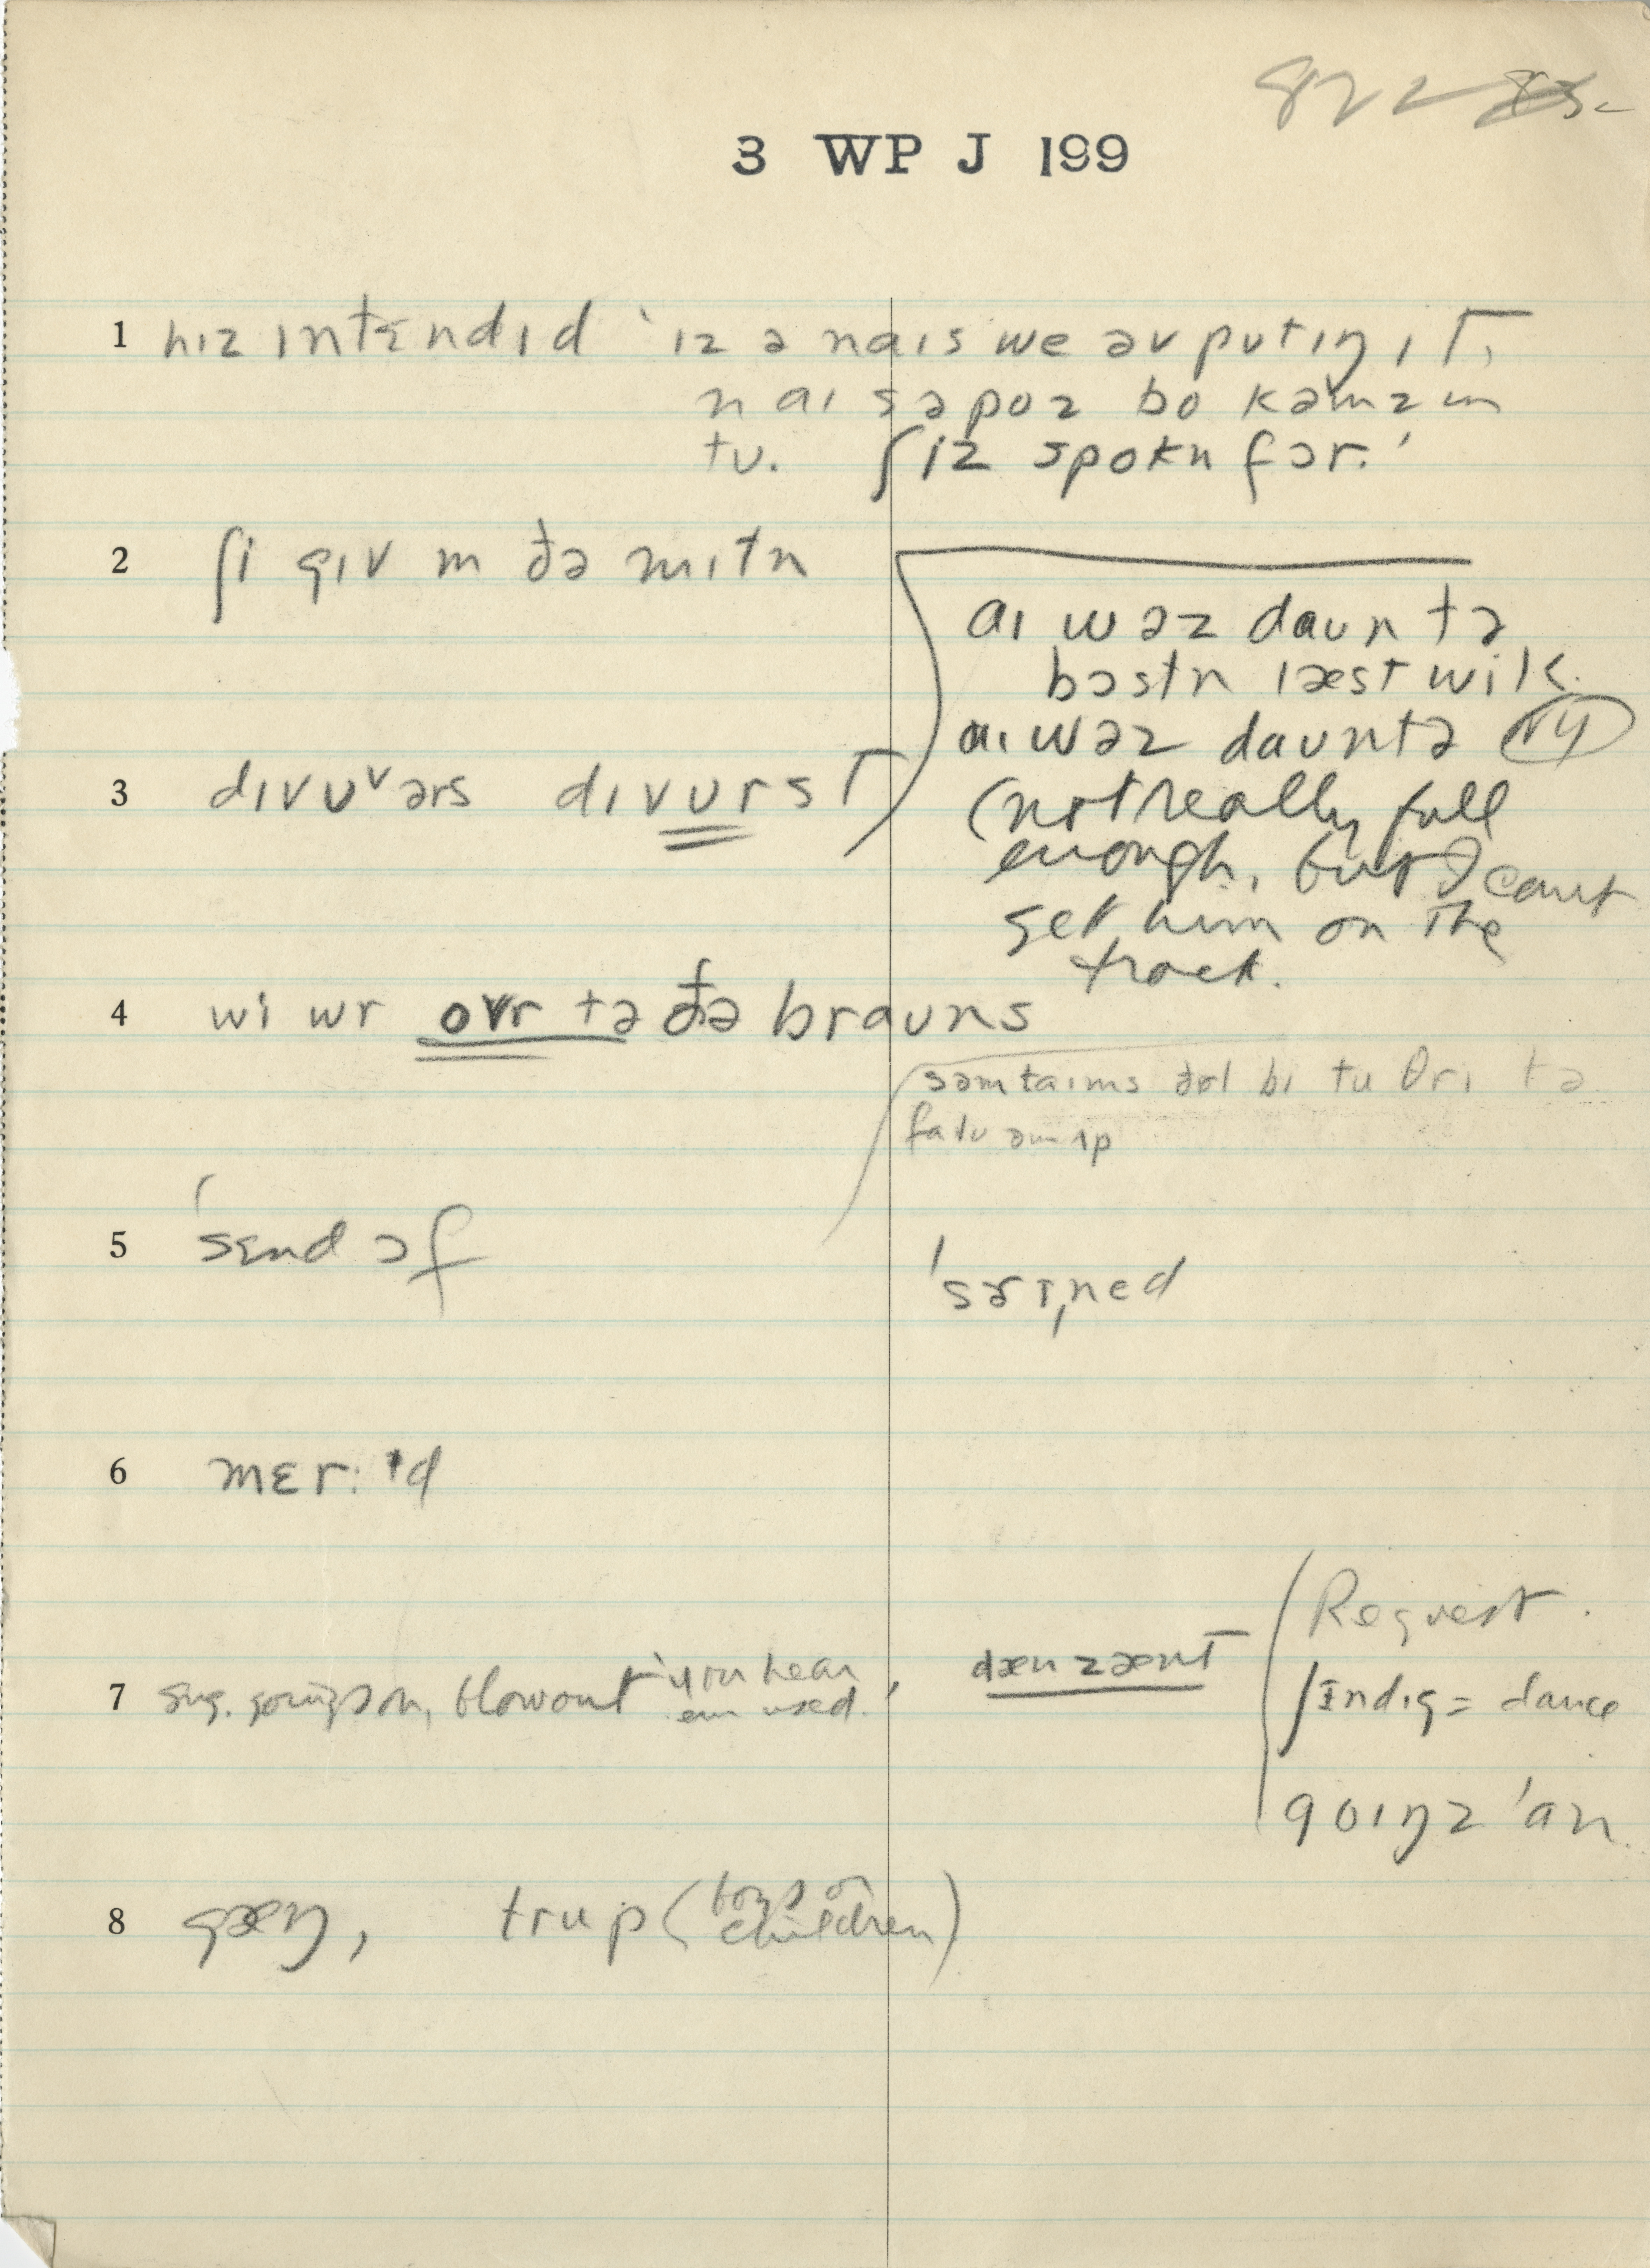 822
3 WP J 199
1 hɪz ɪntɛndɪd 'ɪz ə naɪs we əv pʊtɪŋ ɪt,
n aɪ səpoz bo kəmz ɪn
tʊ. ʃɪz spokn fər.'
2 ʃi gɪv m ðə mɪtn
aɪ wəz daʊn tə
bɔstn læst wik.
aɪ wəz daʊn tə NY
(not really full
enough, but I can't
get him on the
track.
3 dɪvʊᵛərs dɪvʊrst
4 wi wr ovr tə ðə braʊns
səmtaɪms ðəl bi tu θri tə
falʊ əm ʌp
5 'sɛnd ɔf
'sɛrɪˌned
6 mɛr:ɪd
7 sug. goings on, blowout "you hear
em used.
dæn zænt
Request.
ɪndɪg = dance
goɪŋz 'an
8 gæŋ, trup (boys or
children)